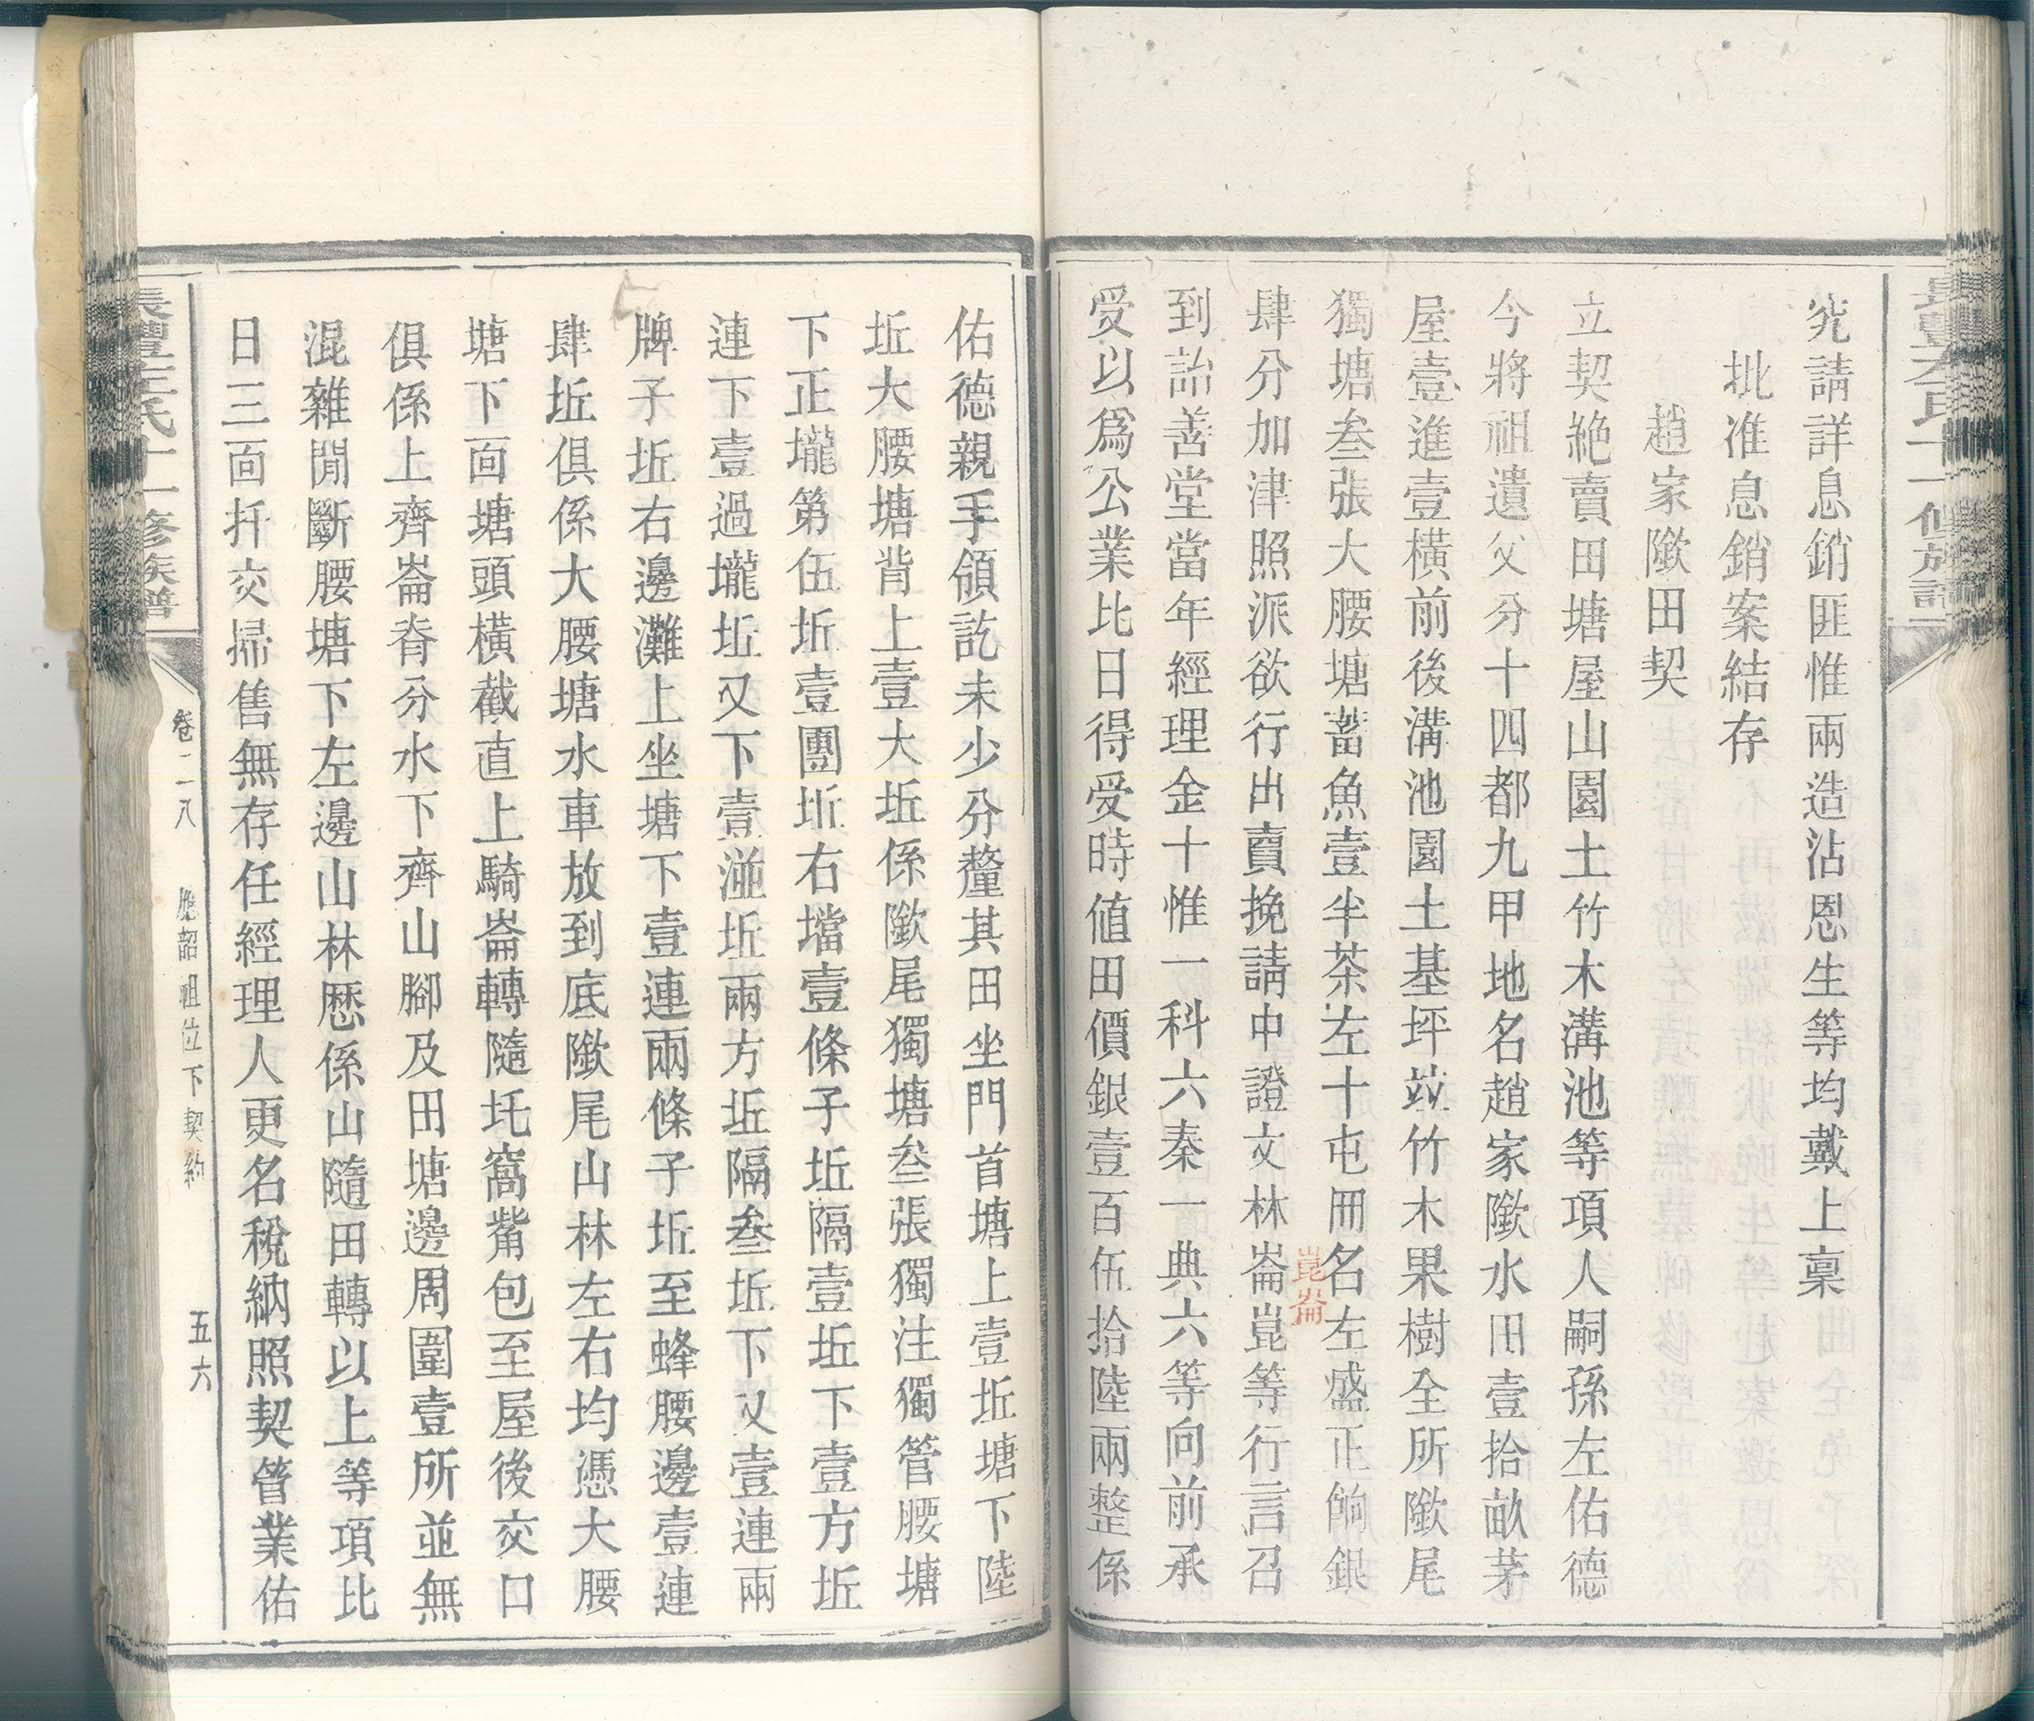 究請詳息銷匪惟兩造沾恩生等均戴上稟
批准息銷案結存
趙家隞田契
立契絶賣田塘屋山園土竹木溝池等項人嗣孫左佑德
今將祖遺父分十四都九甲地名趙家隞水田壹拾畝茅
屋壹進壹橫前後溝池園土基坪竝竹木果樹全所隞尾
獨塘叁張大腰塘蓄魚壹半茶左十屯冊名左盛正餉銀
肆分加津照派欲行出賣挽請中證文林崙崑等行言召
崑崙
到詒善堂當年經理金十惟一科六秦一典六等向前承
受以爲公業比日得受時値田價銀壹百伍拾陸兩整係
佑德親手領訖未少分釐其田坐門首塘上壹坵塘下陸
坵大腰塘背上壹大坵係隞尾獨塘叁張獨注獨管腰塘
下正壠第伍坵壹團坵右壋壹條子坵隔壹坵下壹方坵
連下壹過壠坵又下壹湴坵兩方坵隔叁坵下又壹連兩
牌子坵右邊灘上坐塘下壹連兩條子坵至蜂腰邊壹連
肆坵俱係大腰塘水車放到底隞尾山林左右均憑大腰
塘下面塘頭橫截直上騎崙轉隨圫窩觜包至屋後交口
俱係上齊崙脊分水下齊山腳及田塘邊周圍壹所並無
混雜閒斷腰塘下左邊山林歷係山隨田轉以上等項比
日三面扦交掃售無存任經理人更名稅納照契管業佑
氏十一修族譜
卷二八
應韶祖位下契約
五六